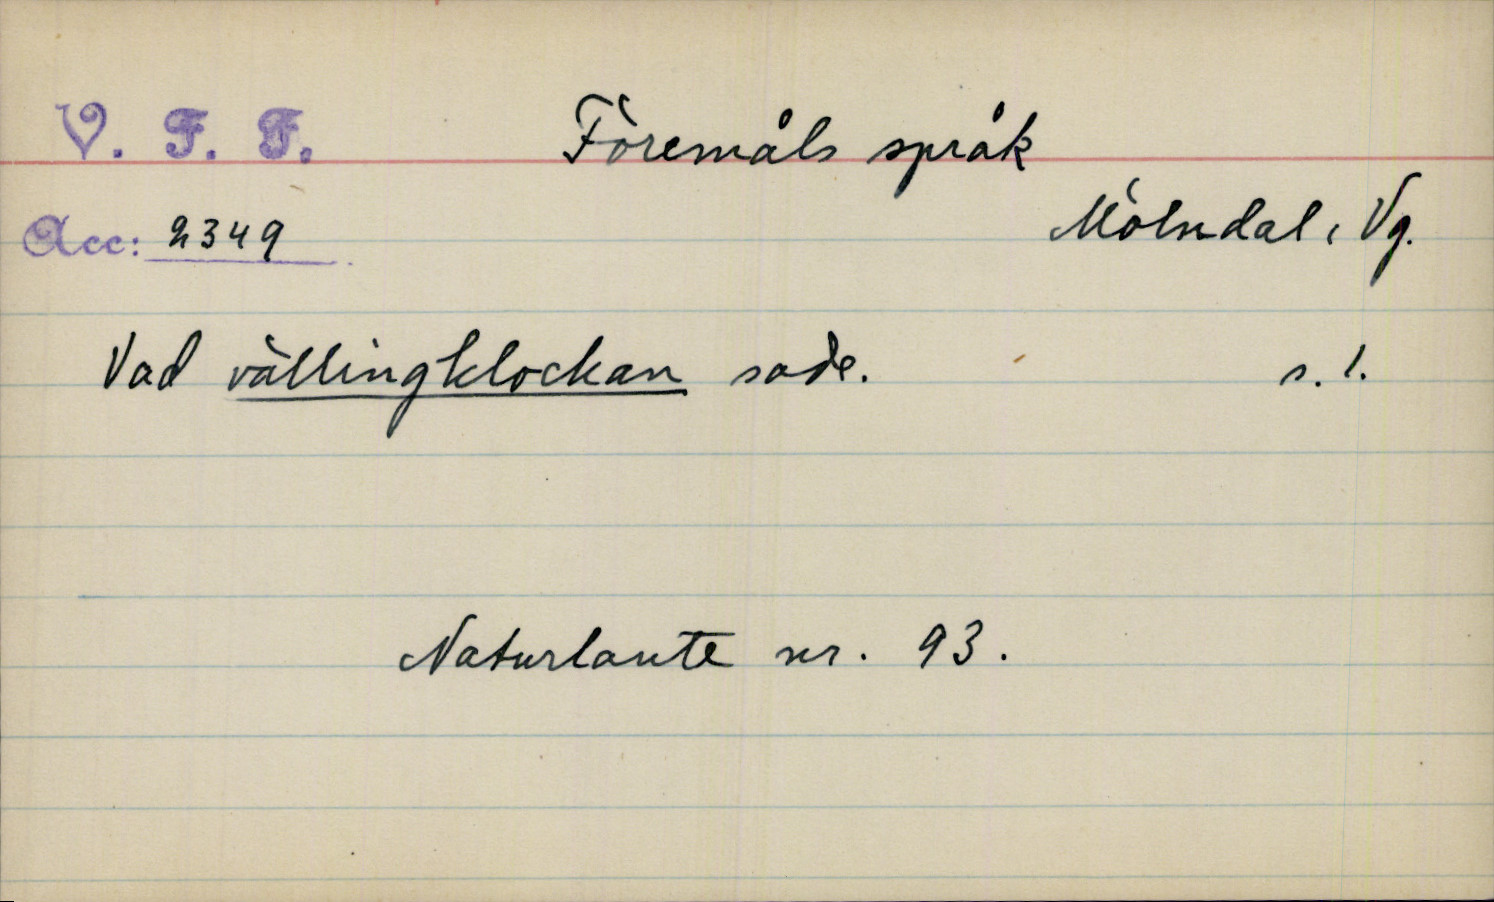 V. F. F. Föremåls språk
Acc: 2349 Mölndal, Vg.
Vad vällingklockan sade. s. 1.
Naturlaute nr. 93.